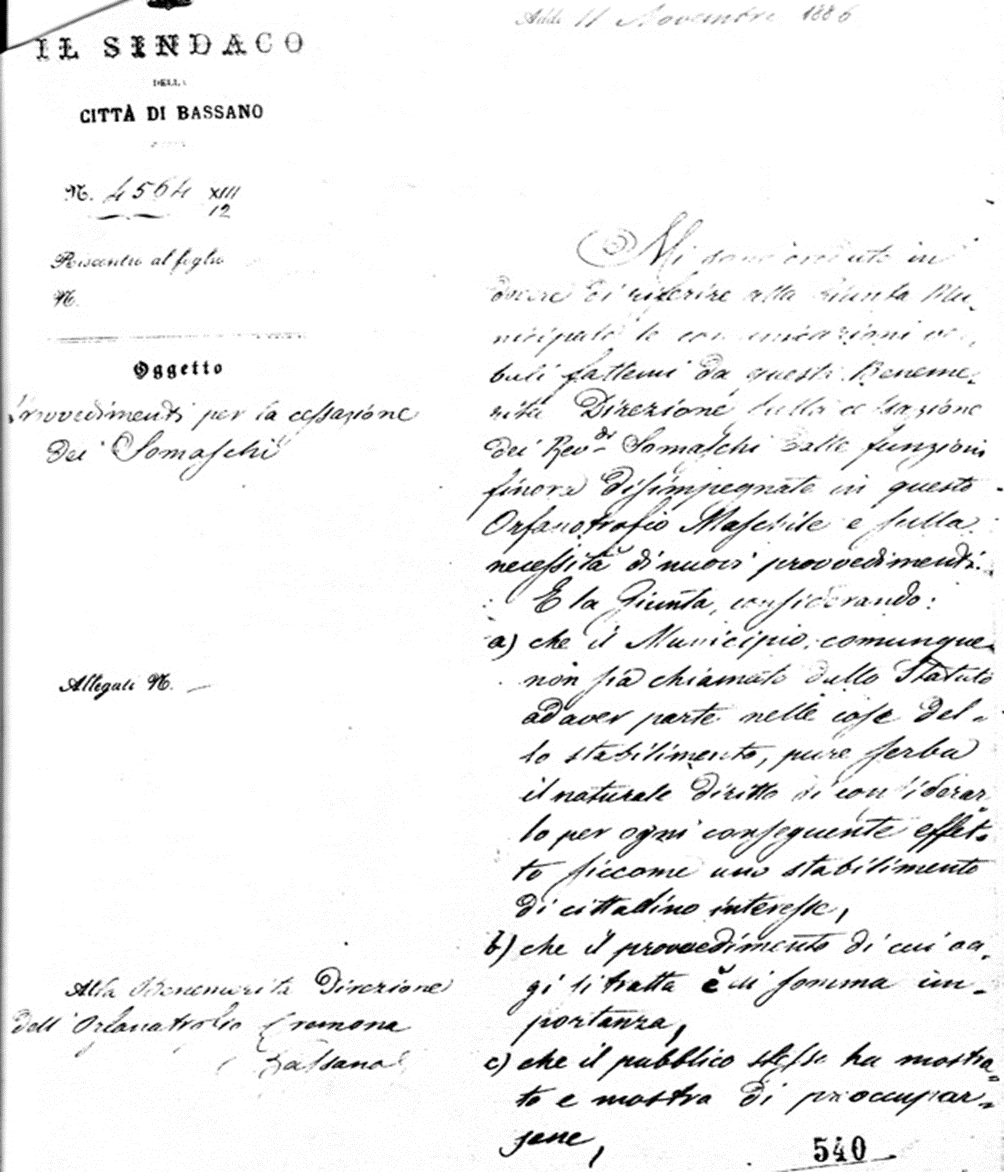 Addì 11 Novembre 1886
IL SINDACO
DELLA
CITTÀ DI BASSANO
N. 4564 XIII
12
Riscontro al foglio
N.
Oggetto
Provvedimenti per la cessazione
dei Somaschi
Allegati N. —
Alla Benemerita Direzione
dell' Orfanatrofio Cremona
Bassano
Mi sono creduto in
dovere di riferire alla Giunta Mu-
nicipale le comunicazioni ver-
bali fattemi da questa Beneme-
rita Direzione sulla cessazione
dei Rev.di Somaschi dalle funzioni
finora disimpegnate in questo
Orfanotrofio Maschile e sulla
necessità di nuovi provvedimenti.
E la Giunta, considerando:
a) che il Municipio, comunque
non sia chiamato dallo Statuto
ad aver parte nelle cose del-
lo stabilimento, pure serba
il naturale diritto di considerar-
lo per ogni conseguente effet-
to siccome uno stabilimento
di cittadino interesse,
b) che il provvedimento di cui og-
gi si tratta è di somma im-
portanza,
c) che il pubblico stesso ha mostra-
to e mostra di preoccupar-
sene,
540